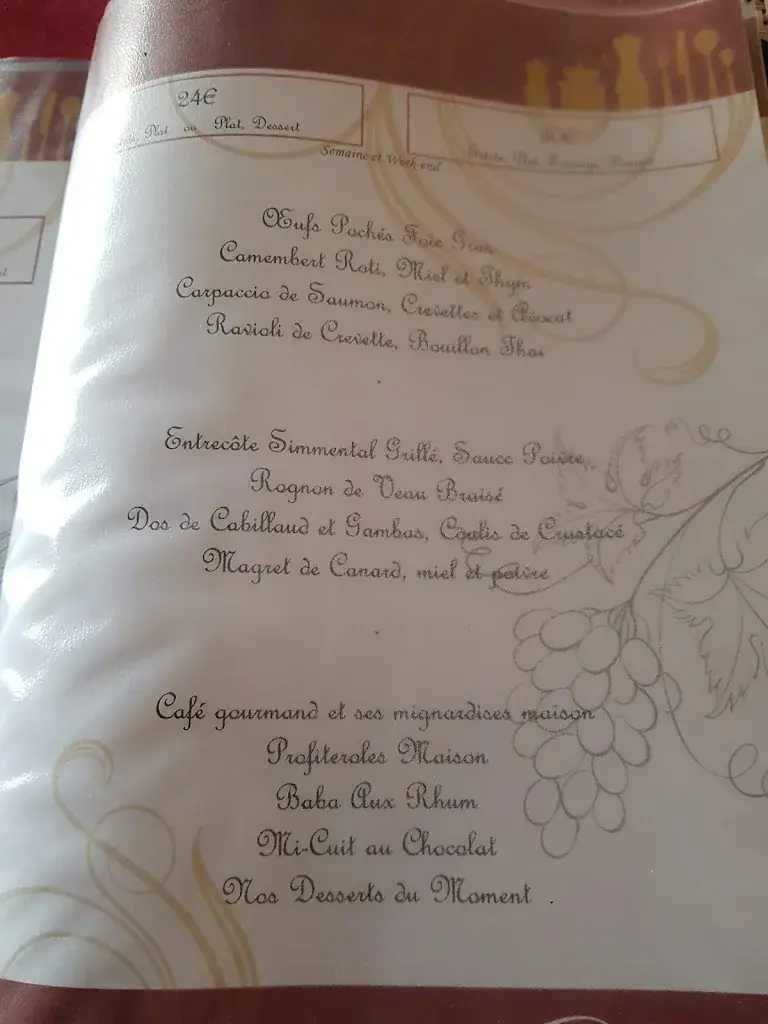 24€
Plat ou Plat, Dessert
Semaine et Week end
Plat, Fromage, Dessert
Œufs Pochés Foie Gras
Camembert Roti, Miel et Thym
Carpaccio de Saumon, Crevettes et Avocat
Ravioli de Crevette, Bouillon Thai
Entrecôte Simmental Grillé, Sauce Poivre
Rognon de Veau Braisé
Dos de Cabillaud et Gambas, Coulis de Crustacé
Magret de Canard, miel et poivre
Café gourmand et ses mignardises maison
Profiteroles Maison
Baba Aux Rhum
Mi-Cuit au Chocolat
Nos Desserts du Moment .